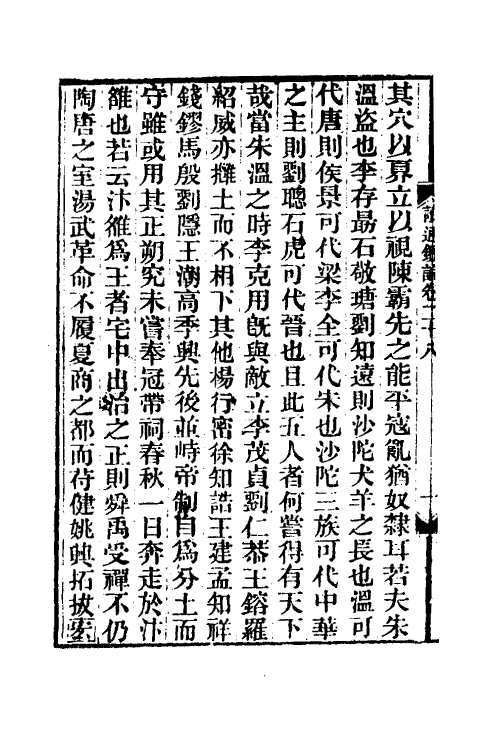 其穴以㬥立以視陳霸先之能平寇亂猶奴隸耳若夫朱
溫盜也李存勗石敬瑭劉知遠則沙陀犬羊之長也溫可
代唐則侯景可代梁李全可代宋也沙陀三族可代中華
之主則劉聰石虎可代晉也且此五人者何嘗得有天下
哉當朱溫之時李克用旣與敵立李茂貞劉仁恭王鎔羅
紹威亦擁土而不相下其他楊行密徐知誥王建孟知祥
錢鏐馬殷劉隱王潮高季興先後並峙帝制自爲分土而
守雖或用其正朔究未嘗奉冠帶祠春秋一日奔走於汴
雒也若云汴雒爲王者宅中出治之正則舜禹受禪不仍
陶唐之室湯武革命不履夏商之都而苻健姚興拓拔宏
讀通鑑論卷二十八
一